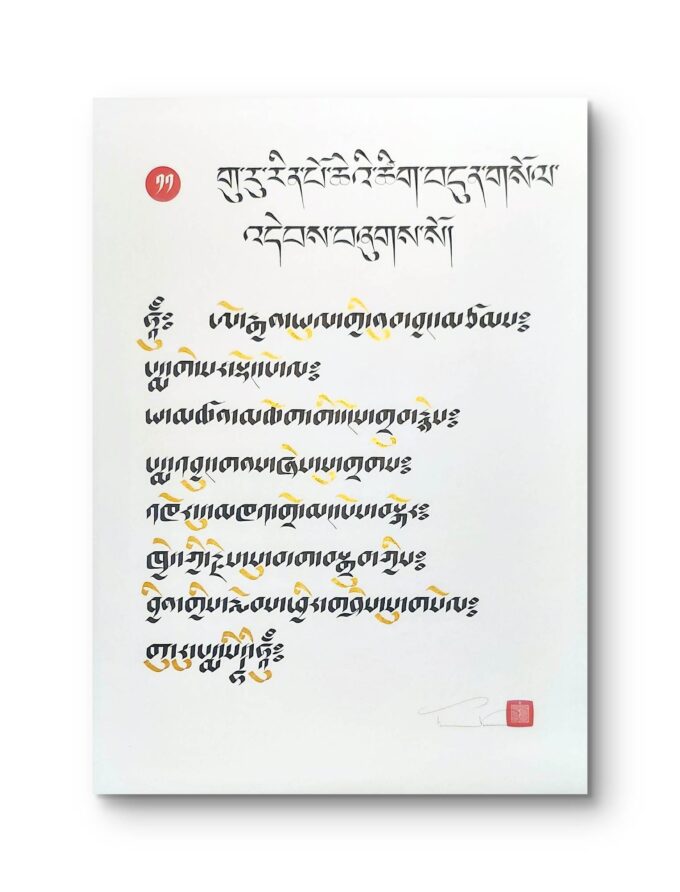 གུ་རུ་རིན་པོ་ཆེའི་ཚིག་བདུན་གསོལ་
འདེབས་བཞུགས་སོ།།
ཧཱུྃ༔ ཨོ་རྒྱན་ཡུལ་གྱི་ནུབ་བྱང་མཚམས༔
པདྨ་གེ་སར་སྡོང་པོ་ལ༔
ཡ་མཚན་མཆོག་གི་དངོས་གྲུབ་བརྙེས༔
པདྨ་འབྱུང་གནས་ཞེས་སུ་གྲགས༔
འཁོར་དུ་མཁའ་འགྲོ་མང་པོས་བསྐོར༔
ཁྱེད་ཀྱི་རྗེས་སུ་བདག་བསྒྲུབ་ཀྱིས༔
བྱིན་གྱིས་རློབ་ཕྱིར་གཤེགས་སུ་གསོལ༔
གུ་རུ་པདྨ་སིདྡྷི་ཧཱུྃ༔